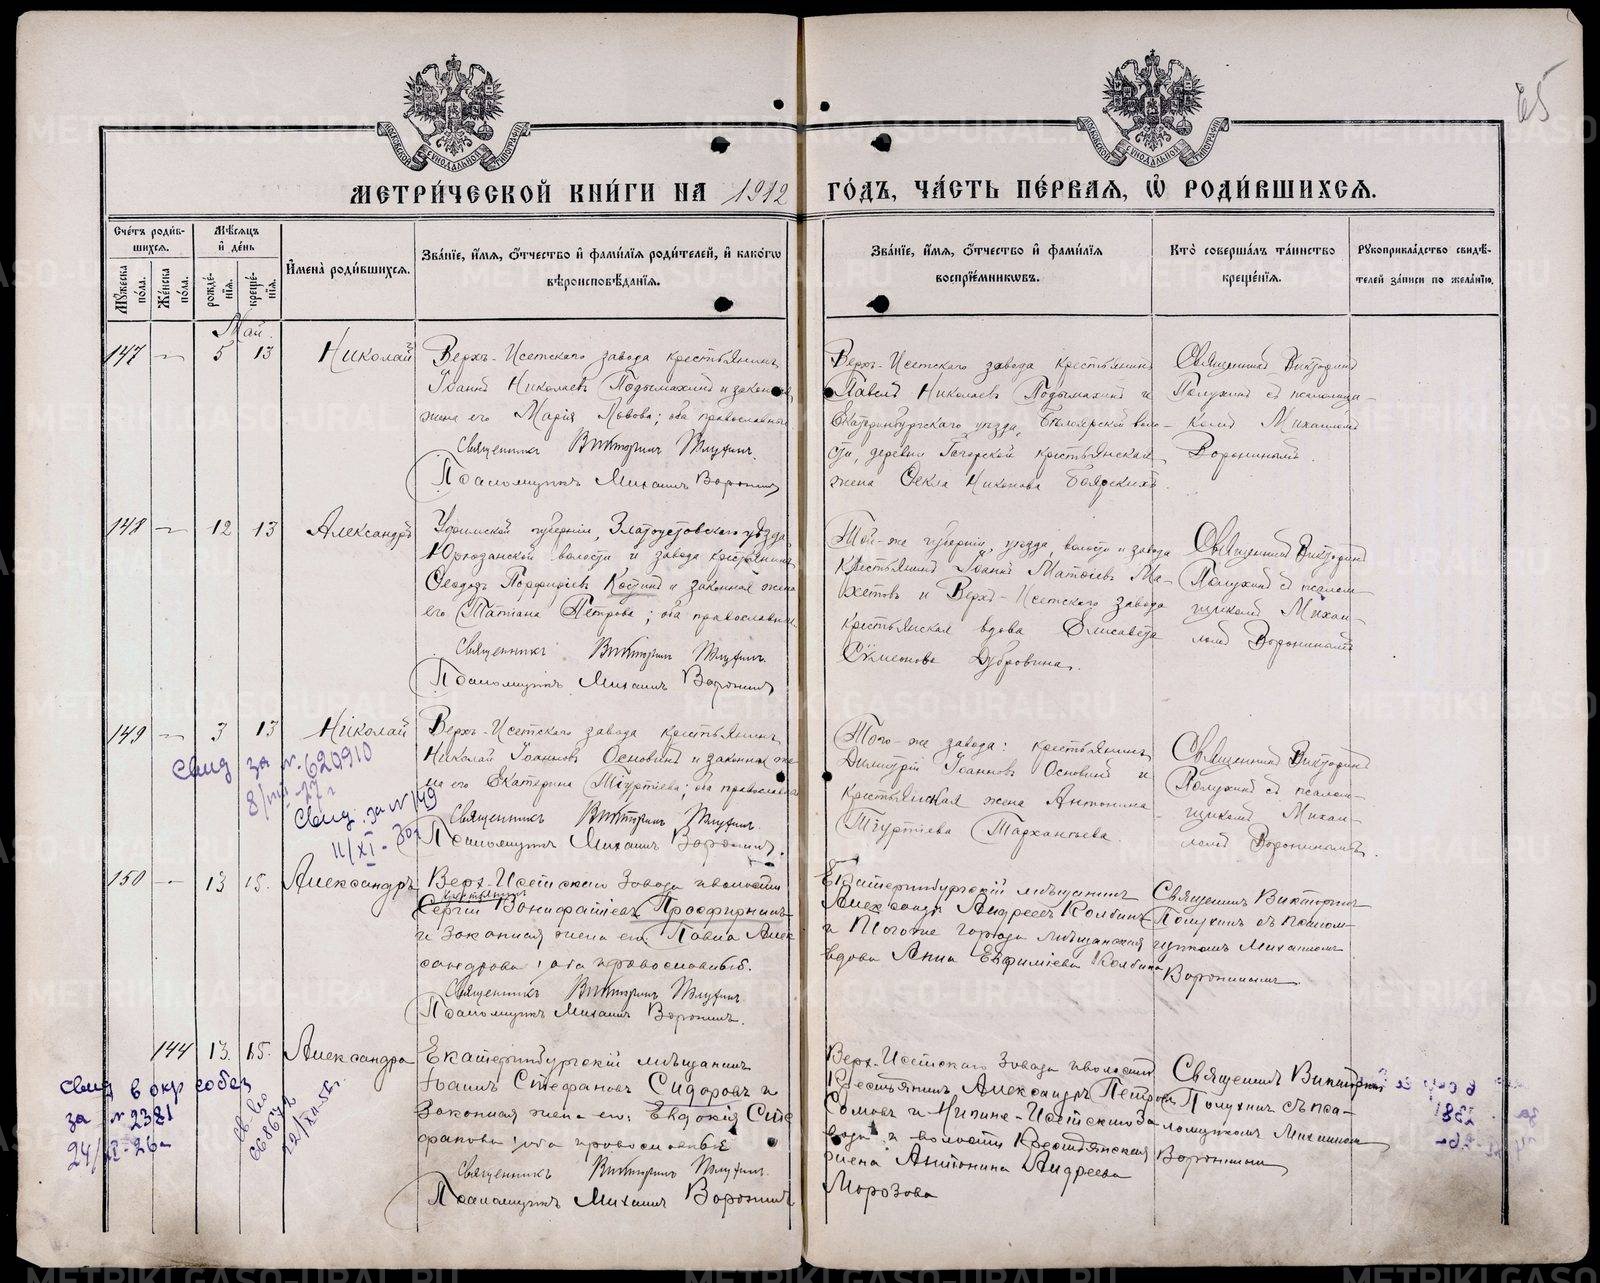 65
МОСКОВСКОЙ СѴНОДАЛЬНОЙ ТИПОГРАФІИ
МОСКОВСКОЙ СѴНОДАЛЬНОЙ ТИПОГРАФІИ
МЕТРИ́ЧЕСКОЙ КНИ́ГИ НА 1912 ГО́ДЪ, ЧА́СТЬ ПЕ́РВАЯ, Ѡ РОДИ́ВШИХСЯ.
Сче́тъ роди́в-
шихся.
Мꙋжеска по́ла.
Же́нска по́ла.
Мѣ́сяцъ
и҆ де́нь
рожде́-
нїя.
креще́-
нїя.
И҆мена̀ роди́вшихся.
Зва́нїе, и҆́мя, ѻ҆́тчество и҆ фами́лїя роди́телей, и҆ како́гѡ
вѣроисповѣ́данїя.
Зва́нїе, и҆́мя, ѻ҆́тчество и҆ фами́лїя
воспрїе́мникѡвъ.
Кто̀ соверша́лъ та́инство
креще́нїя.
Рꙋкоприкла́дство свидѣ́-
телей за́писи по жела́нїю.
Май.
147 — 5 13 Николай
Верхъ-Исетскаго завода крестьянинъ
Іоаннъ Николаевъ Подымахинъ и законная
жена его Марія Львова; оба православные
Священникъ Викторинъ Полухинъ.
Псаломщикъ Михаилъ Воронинъ
Верхъ-Исетскаго завода крестьянинъ
Павелъ Николаевъ Подымахинъ и
Екатеринбургскаго уѣзда, Бѣлоярской воло-
сти, деревни Гагарской крестьянская
жена Ѳекла Никонова Боярскихъ.
Священникъ Викторинъ
Полухинъ съ псаломщи-
комъ Михаиломъ
Воронинымъ.
148 — 12 13 Александръ
Уфимской губерніи, Златоустовскаго уѣзда,
Юрюзанской волости и завода крестьянинъ
Ѳеодоръ Порфирьевъ Костинъ и законная жена
его Татіана Петрова; оба православные
Священникъ Викторинъ Полухинъ.
Псаломщикъ Михаилъ Воронинъ
Той-же губерніи, уѣзда, волости и завода
крестьянинъ Іоаннъ Матѳіевъ Ма-
хетовъ и Верхъ-Исетскаго завода
крестьянская вдова Елисавета
Сѵмеонова Дубровина.
Священникъ Викторинъ
Полухинъ съ псалом-
щикомъ Михаи-
ломъ Воронинымъ
149 — 3 13 Николай
Верхъ-Исетскаго завода крестьянинъ
Николай Іоанновъ Основинъ и законная же-
на его Екатерина Тѵртіева; оба православные
Священникъ Викторинъ Полухинъ.
Псаломщикъ Михаилъ Воронинъ.
Свид за № 620910
8/VIII-77г
Свид. за № 149
11/XI-30г
Того-же завода: крестьянинъ
Димитрій Іоанновъ Основинъ и
крестьянская жена Антонина
Тѵртіева Тарханьева.
Священникъ Викторинъ
Полухинъ съ псалом-
щикомъ Михаи-
ломъ Воронинымъ.
150 — 13 15. Александръ
Верх-Исетскаго Завода и волости
крестьянинъ
Сергій Вонифатіевъ Просфирнинъ
и Законная жена его: Павла Алек-
сандрова; оба православные.
Священникъ Викторинъ Полухинъ.
Псаломщикъ Михаилъ Воронинъ.
Екатеринбургскій мѣщанинъ
Александръ Андреевъ Колбинъ
и Тогоже города мѣщанская
вдова Анна Евфиміева Колбина
Священникъ Викторинъ
Полухинъ съ псалом-
щикомъ Михаиломъ
Воронинымъ.
144 13. 15. Александра
Екатеринбургскій мѣщанинъ
Іоаннъ Стефановъ Сидоровъ и
Законная жена его: Евдокія Сте-
фанова; оба православные
Священникъ Викторинъ Полухинъ.
Псаломщикъ Михаилъ Воронинъ
свид в окр собез
за № 2381
24/XI-26г
668672
22/XII-56г.
Верх-Исетскаго Завода и волости
Крестьянинъ Александръ Петровъ
Сомовъ и Нижне-Исетскаго За-
вода и волости Крестьянская
жена Антонина Андреева
Морозова
Священникъ Викторинъ
Полухинъ съ пса-
ломщикомъ Михаиломъ
Воронинымъ
METRIKI.GASO-URAL.RU